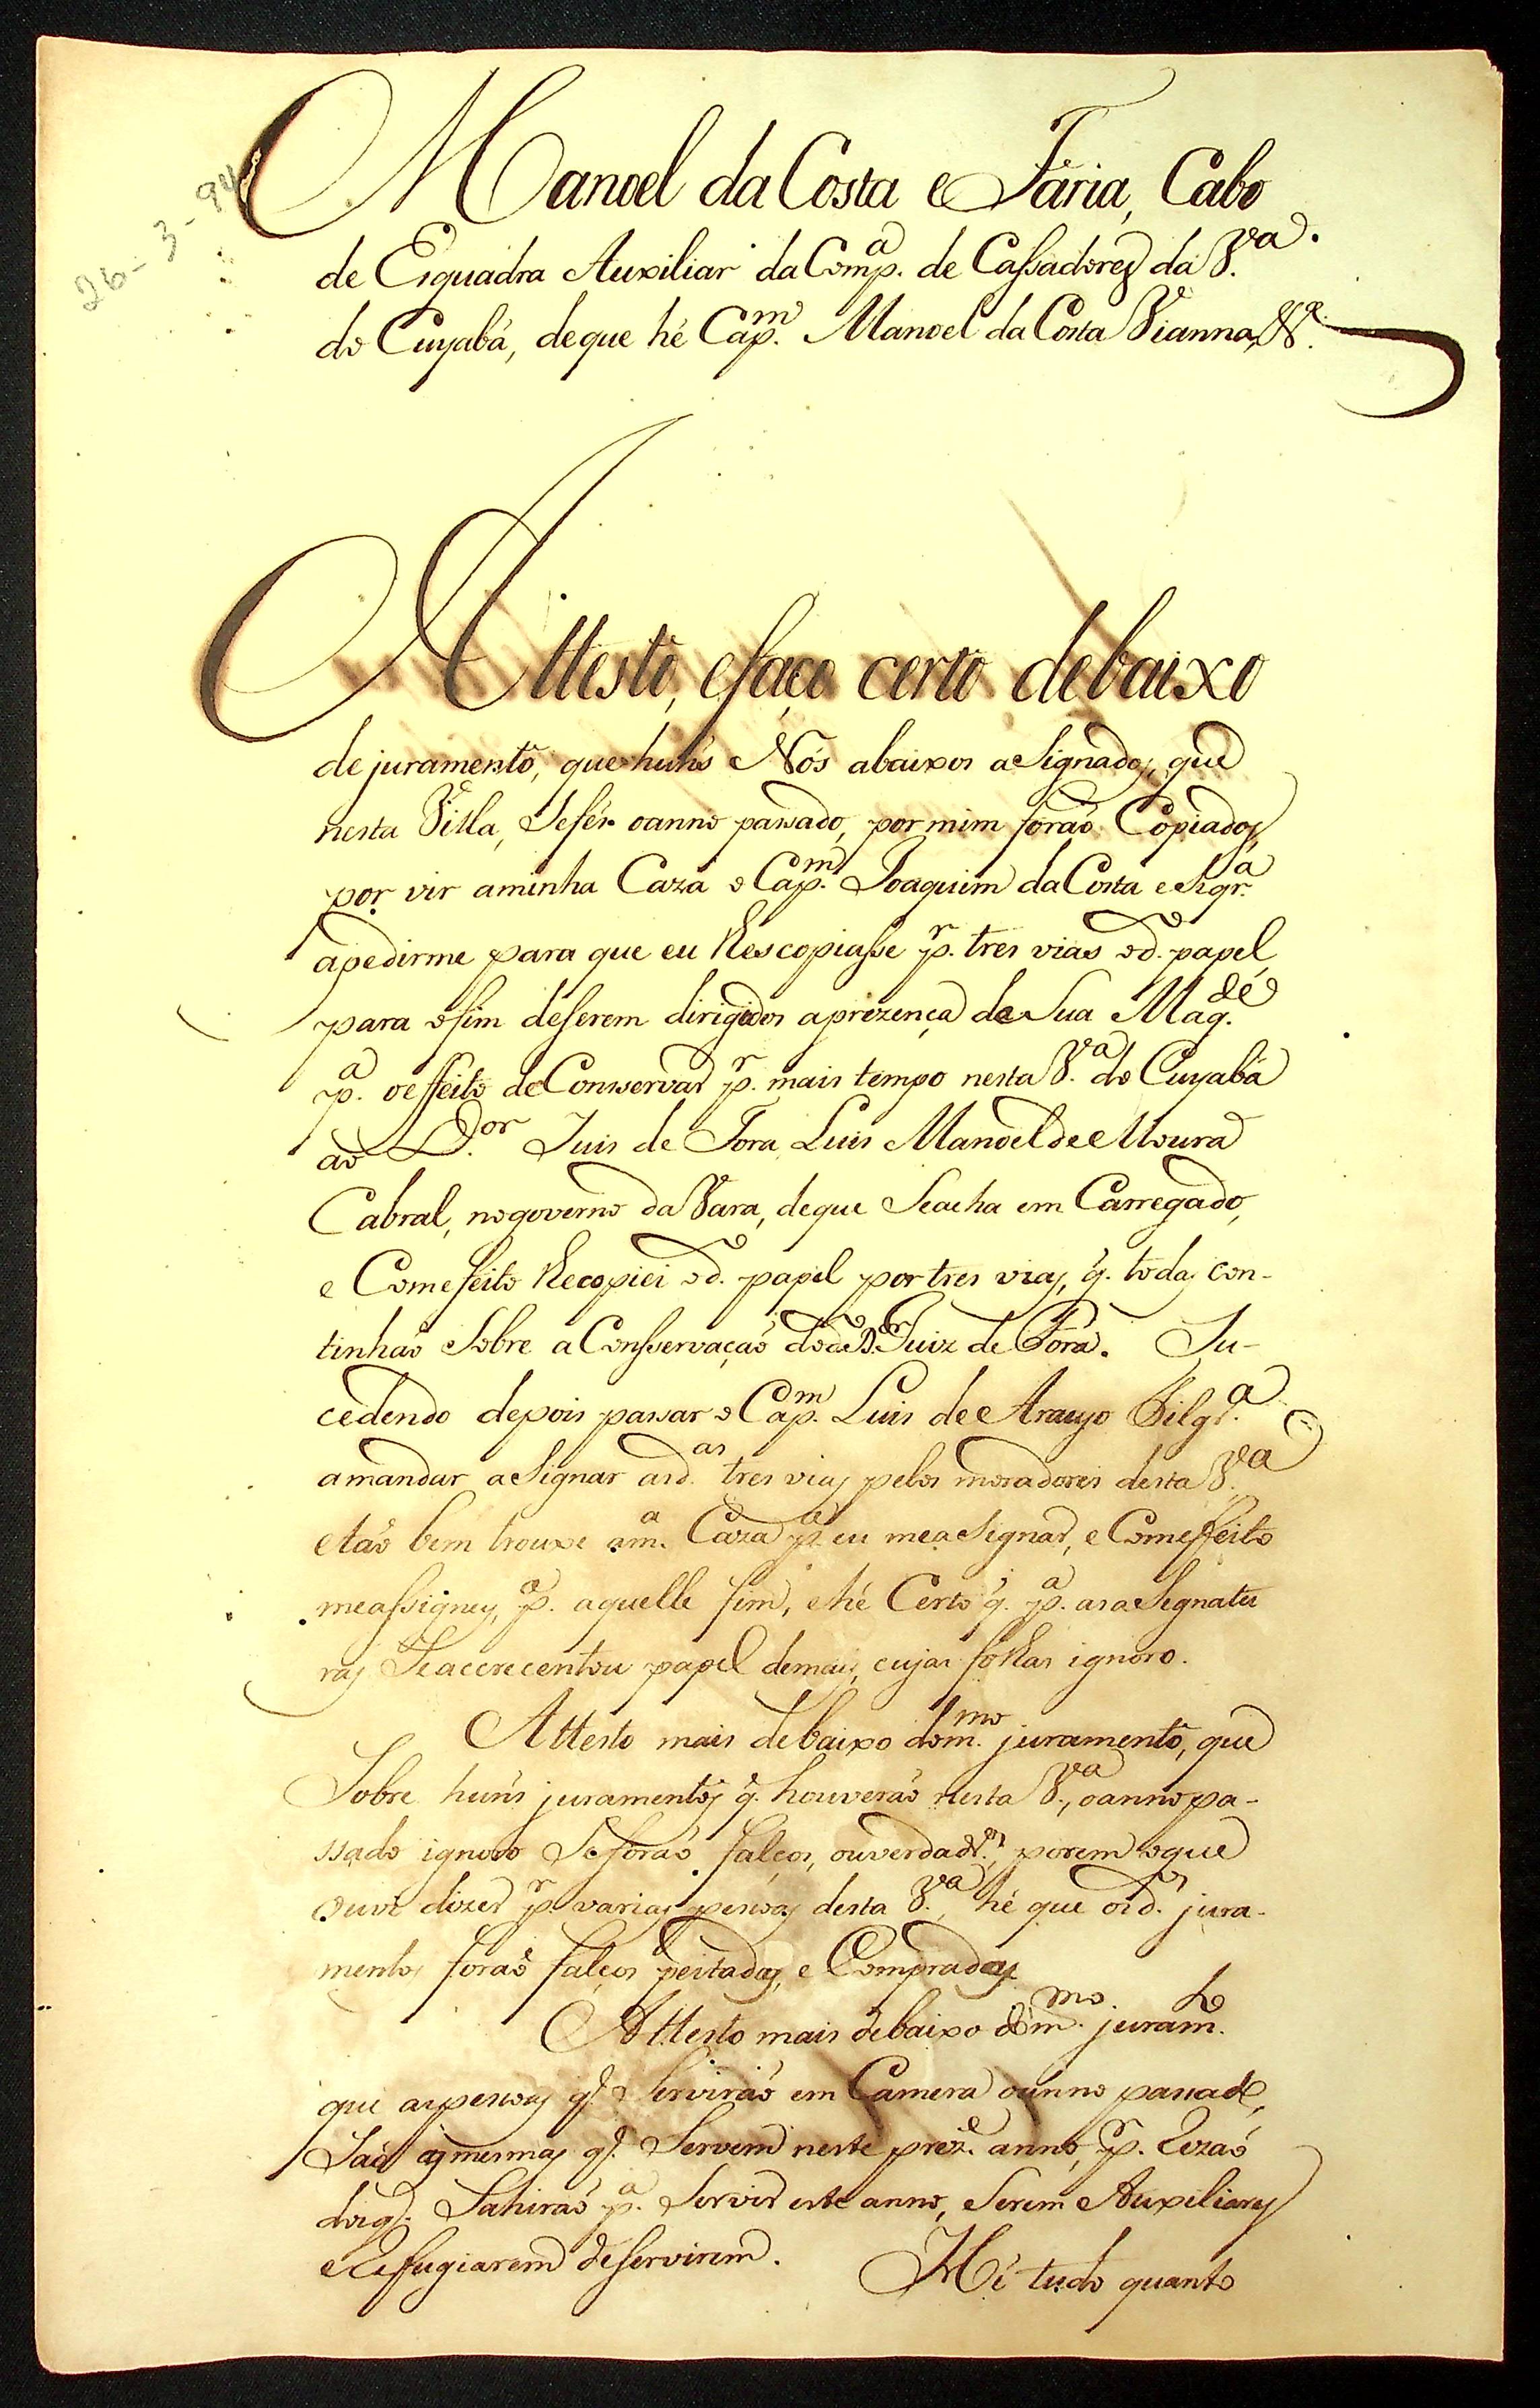 26-3-94
Manoel da Costa e Faria, Cabo
de Esquadra Auxiliar da Comp.ª de Cassadores da V.ª
do Cuyabá, de que hé Cap.m Manoel da Costa Vianna, &ª.
Attesto, e faço certo debaixo
de juramento, que huns Nós abaixos asignados, que
nesta Villa, se fés o anno passado, por mim forão Copiados,
por vir a minha Caza o Cap.m Joaquim da Costa e Siqr.ª
apedirme para que eu Rescopiasse p.r tres vias o d.o papel,
para o fim de serem dirigidos a prezença de Sua Mag.de
p.ª o effeito de Conservar p.r mais tempo nesta V.ª do Cuyabá
ao D.or Juis de Fora Luis Manoel de Moura
Cabral, no governo da Vara, de que Se acha em Carregado,
e Com efeito Recopiei o d.o papel por tres vias, q. todas con-
tinhaõ Sobre a Consservaçaõ do d.o D.or Juiz de Fóra. Su-
cedendo depois passar o Cap.m Luis de Araujo Filgr.ª
a mandar aSignar as d.as tres vias pelos moradores desta V.ª
e taõ bem trouxe a m.ª Caza p.ª eu me aSignar, e Com effeito
me assigney, p.ª aquelle fim, e hé Certo q. p.ª as aSignatu
ras Se accrecentou papel demais, cujas folhas ignoro.
Attesto mais debaixo do m.mo juramento, que
Sobre huns juramentos q. houveraõ nesta V.ª, o anno pa-
ssado ignoro Se foraõ falços, ou verdadr.os, porem o que
ouvi dizer p.r varias pessoas desta V.ª, hé que os d.os jura-
mentos foraõ falços peitados, e Comprados
Attesto mais debaixo do m.mo juram.to
que as pessoas q. Serviraõ em Camera o anno passado,
Saõ as mesmas q. Servem neste prez.e anno, p.r Rezaõ
dos q. Sahiraõ p.ª Servir este anno, Serem Auxiliares
e Refugiarem de Servirem. Hé tudo quanto